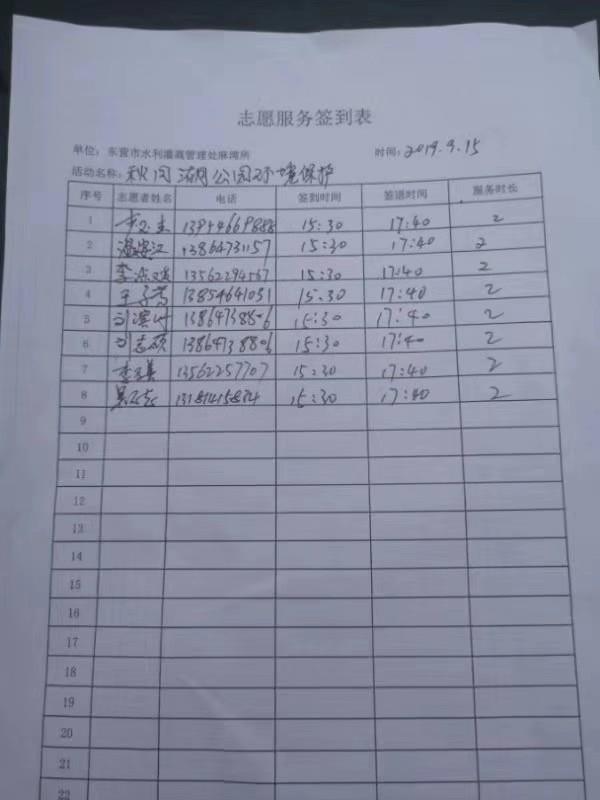 志愿服务签到表
单位：东营市水利灌溉管理处麻湾所 时间：2019.9.15
活动名称：秋月湖公园环境保护
序号 志愿者姓名 电话 签到时间 签退时间 服务时长
1 15:30 17:40 2
2 13864731157 15:30 17:40 2
3 13562294567 15:30 17:40 2
4 王子嵩 13854641031 15:30 17:40 2
5 刘滨 13864738806 15:30 17:40 2
6 刘志硕 13864738806 15:30 17:40 2
7 13562257707 15:30 17:40 2
8 15:30 17:40 2
9
10
11
12
13
14
15
16
17
18
19
20
21
22